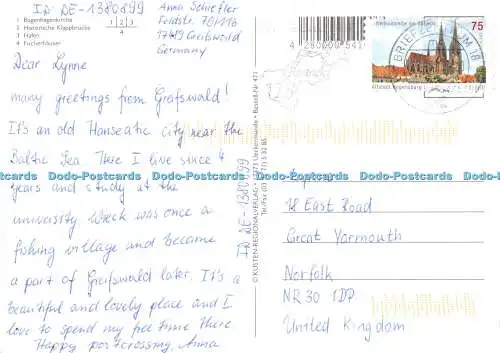 1 Bugenhagenkirche
2 Historische Klappbrücke
3 Hafen
4 Fischerhäuser
1 2 3
4
ID DE-1380899
Anna Schiefler
17489 Greifswald
Germany
Dear Lynne
many greetings from Greifswald!
It's an old Hanseatic city near the
Baltic Sea. Here I live since 4
years and study at the
university. Wieck was once a
fishing village and became
a part of Greifswald later. It's a
beautiful and lovely place and I
love to spend my free time there
Happy postcrossing, Anna
ID DE-1380899
© KÜSTEN-REGIONALVERLAG
Bestell-Nr. 471
4 280000 541
75
BRIEFZENTRUM 18
Altstadt Regensburg
18 East Road
Great Yarmouth
Norfolk
NR30 1DP
United Kingdom
Dodo-Postcards Dodo-Postcards Dodo-Postcards Dodo-Postcards
Dodo-Postcards Dodo-Postcards Dodo-Postcards Dodo-Postcards